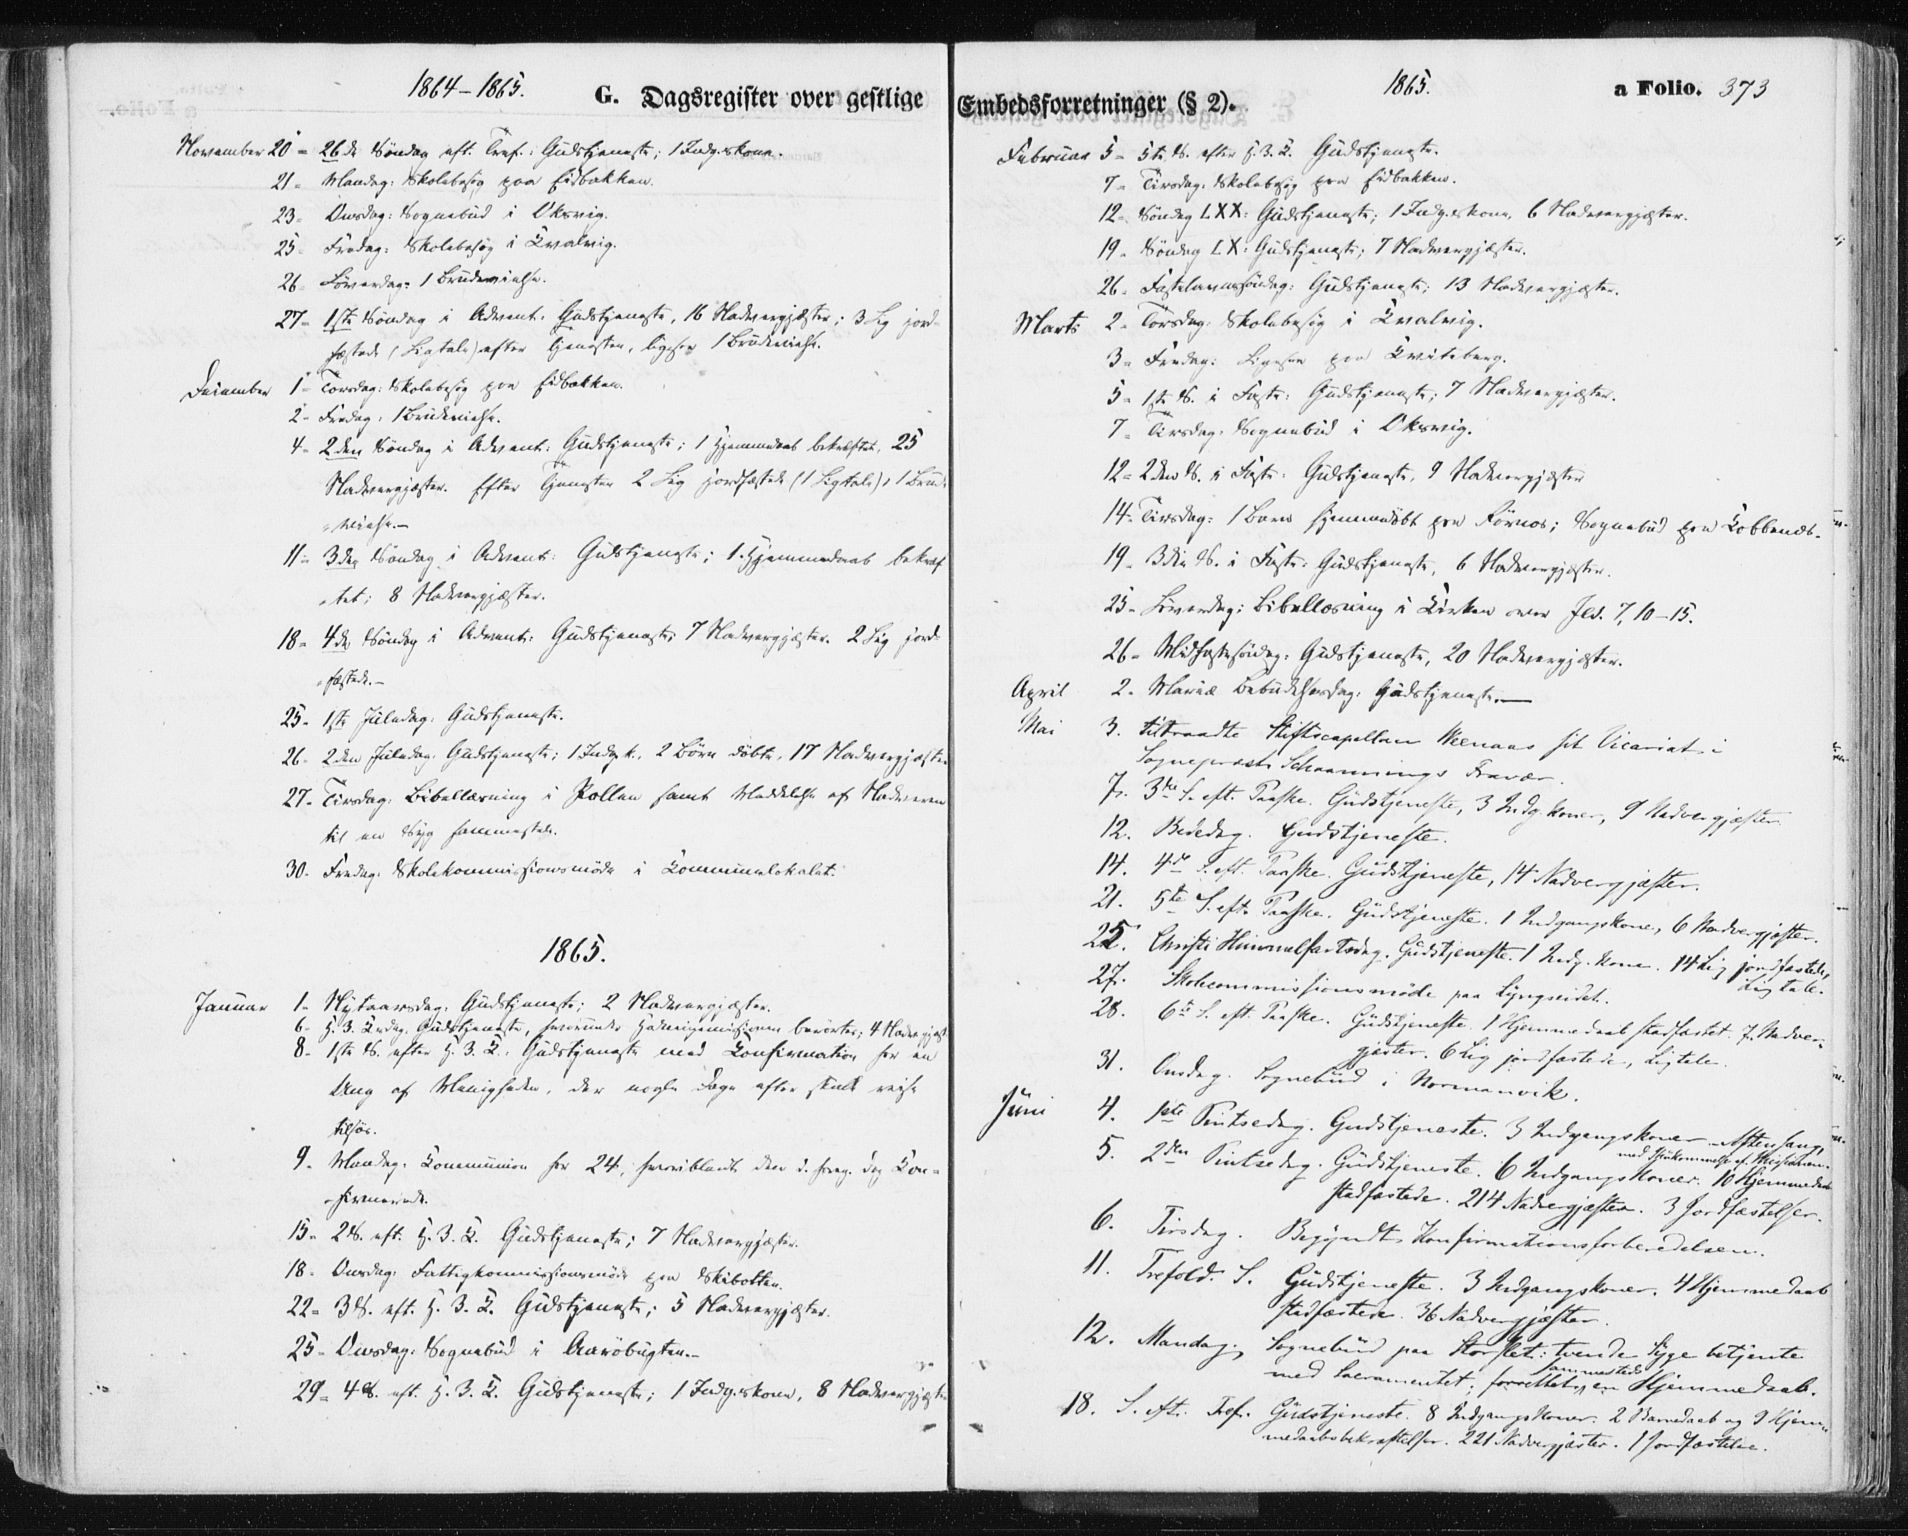 1864-1865.
G. Dagsregister over gestlige
November 20 - 26de Søndag eft. Tref.: Gudstjeneste; 1 Indg.skone.
21 - Mandag: Skolebesøg paa Eidbakken.
23 - Onsdag: Sognebud i Oksvig.
25 - Fredag: Skolebesøg i Kvalvig.
26 - Løverdag: 1 Brudevielse.
27 - 1ste Søndag i Advent: Gudstjeneste, 16 Nadvergjæster; 3 Lig jord-
fæstede (Ligtale) efter Tjenesten, ligesaa 1 Brudevielse.
December 1 - Torsdag: Skolebesøg paa Eidbakken.
2 - Fredag: 1 Brudevielse.
4 - 2den Søndag i Advent: Gudstjeneste; 1 Hjemmedaab bekræftet, 25
Nadvergjæster. Efter Tjenesten 2 Lig jordfæstede (1 Ligtale), 1 Brude-
vielse.-
11 - 3die Søndag i Advent: Gudstjeneste; 1 Hjemmedaab bekræf
tet; 8 Nadvergjæster.
18 - 4de Søndag i Advent: Gudstjeneste; 7 Nadvergjæster. 2 Lig jord-
fæstede.-
25 - 1ste Juledag: Gudstjeneste.
26 - 2den Juledag: Gudstjeneste; 1 Indg.k. 2 Børn døbte, 17 Nadvergjæster
27 - Tirsdag: Bibellæsning i Pollen samt Meddelelse af Nadveren
til en Syg sammesteds.
30 - Fredag: Skolekommissionsmøde i Kommunelokalet.
1865.
Januar 1 - Nytaarsdag: Gudstjeneste; 2 Nadvergjæster.
6 - H. 3. K. dag: Gudstjeneste, hvorunder Hedningemissionen berørtes; 4 Nadvergjæst
8 - 1ste S. efter H. 3. K.: Gudstjeneste med Confirmation for en
Ung af Menigheden, der nogle Dage efter skulde reise
tilsøs.
9 - Mandag: Communion for 24, hvoriblandt den d. foreg. Dag Con-
firmerede.
15 - 2 S. eft. H. 3. K. Gudstjeneste; 7 Nadvergjæster.
18 - Onsdag: Fattigkommissionsmøde paa Skibotten.
22 - 3 S. eft. H. 3. K. Gudstjeneste; 5 Nadvergjæster.
25 - Onsdag: Sognebud i Aarøbugten.-
29 - 4 S. eft. H. 3. K. Gudstjeneste; 1 Indg.skone, 8 Nadvergjæster
1865.
a Folio. 373
Embedsforretninger (§ 2).
Februar 5 - 5te S. efter H. 3. K. Gudstjeneste.
7 - Tirsdag: Skolebesøg paa Eidbakken.
12 - Søndag LXX: Gudstjeneste; 1 Indg.skone, 6 Nadvergjæster.
19 - Søndag LX: Gudstjeneste; 7 Nadvergjæster.
26 - Fastelavnssøndag: Gudstjeneste; 13 Nadvergjæster.
Marts 2 - Torsdag: Skolebesøg i Kvalvig.
3 - Fredag: Ligesaa paa Kviteberg.
5 - 1ste S. i Faste: Gudstjeneste; 7 Nadvergjæster.
7 - Tirsdag: Sognebud i Oksvig.
12 - 2den S. i Faste: Gudstjeneste, 9 Nadvergjæster
14 - Tirsdag: 1 Barn hjemmedøbt paa Førnes; Sognebud paa Kobbenes.
19 - 3die S. i Faste: Gudstjeneste, 6 Nadvergjæster.
25 - Løverdag: Bibellæsning i Kirken over Jes. 7, 10-15.
26 - Midfastesøndag: Gudstjeneste, 20 Nadvergjæster.
April 2 - Mariæ Bebudelsesdag: Gudstjeneste.-
Mai 3. tiltraadte Stiftscapellan Weenaas sit Vicariat i
Sognepræst Schaannings Fravær.
7. 3die S. eft. Paaske. Gudstjeneste, 3 Indg.koner, 9 Nadvergjæster.
12. Bededag. Gudstjeneste.
14. 4de S. eft. Paaske. Gudstjeneste, 14 Nadvergjæster.
21. 5te S. eft. Paaske. Gudstjeneste. 1 Indgangskone, 6 Nadvergjæster.
25. Christi Himmelfartsdag. Gudstjeneste. 1 Indg.kone. 14 Lig jordfæstede,
Ligtale.
27. Skolecommissionsmøde paa Lyngseidet.
28. 6te S. eft. Paaske. Gudstjeneste. 1 Hjemmedaab stadfæstet. 7 Nadver-
gjæster. 6 Lig jordfæstede, Ligtale.
31. Onsdag. Sognebud i Normanvik.
Juni 4. 1ste Pintsedag. Gudstjeneste. 3 Indgangskoner. Aftensang,
med Ihukommelse af Missionen.
5. 2den Pintsedag. Gudstjeneste. 6 Indgangskoner. 10 Hjemmedaab
stadfæstede. 214 Nadvergjæster. 3 Jordfæstelser.
6. Tirsdag. Begyndt Konfirmationsforberedelsen.
11. Trefold. S. Gudstjeneste. 3 Indgangskoner. 4 Hjemmedaab
stadfæstede. 36 Nadvergjæster.
12. Mandag. Sognebud paa Storslet: tvende Syge betjente
med Sacramentet; forrettet sammesteds en Hjemmedaab.
18. S. eft. Tref. Gudstjeneste. 8 Indgangskoner. 2 Barnedaab og 9 Hjem-
medaabsbekræftelser. 221 Nadvergjæster. 1 Jordfæstelse.